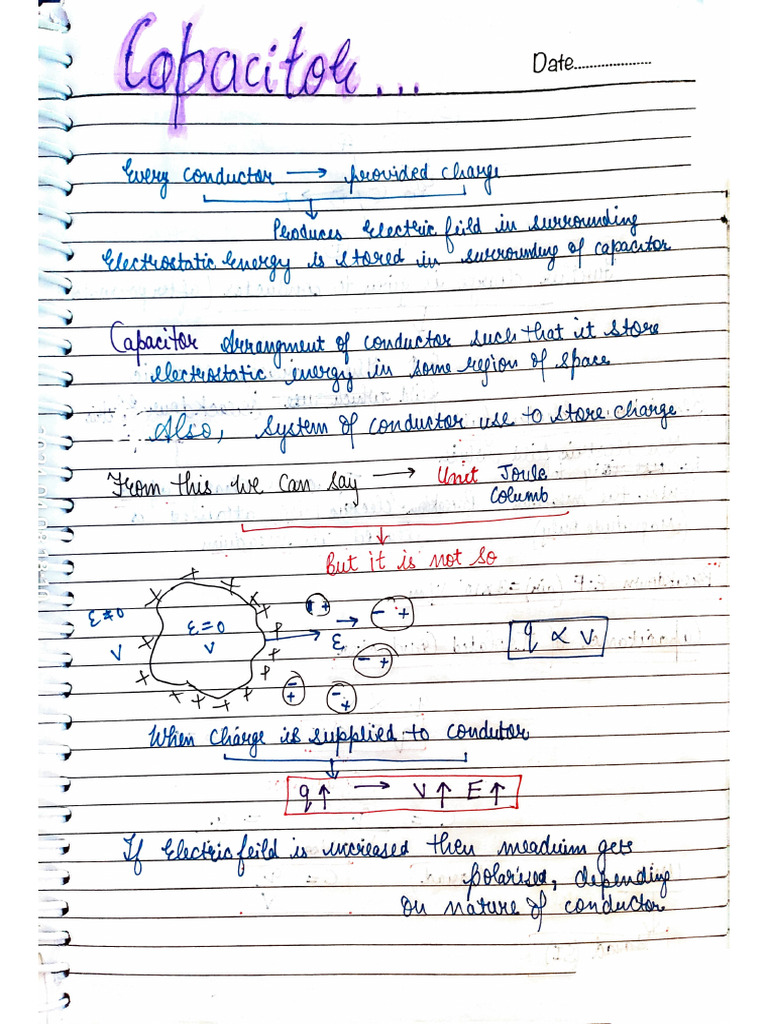 Capacitor...
Date....................
Every conductor → provided charge
Produces Electric feild in surrounding
Electrostatic Energy is stored in surrounding of capacitor
Capacitor Arrangment of conductor such that it store
electrostatic energy in some region of space
Also, System of conductor use to store charge
From this we can say → Unit Joule
Columb
But it is not so
ε≠0
ε=0
V
V
ε
q ∝ V
When charge is supplied to condutor
q↑ → V↑ E↑
If Electric feild is increased then meadium gets
polarised, depending
on nature of conductor